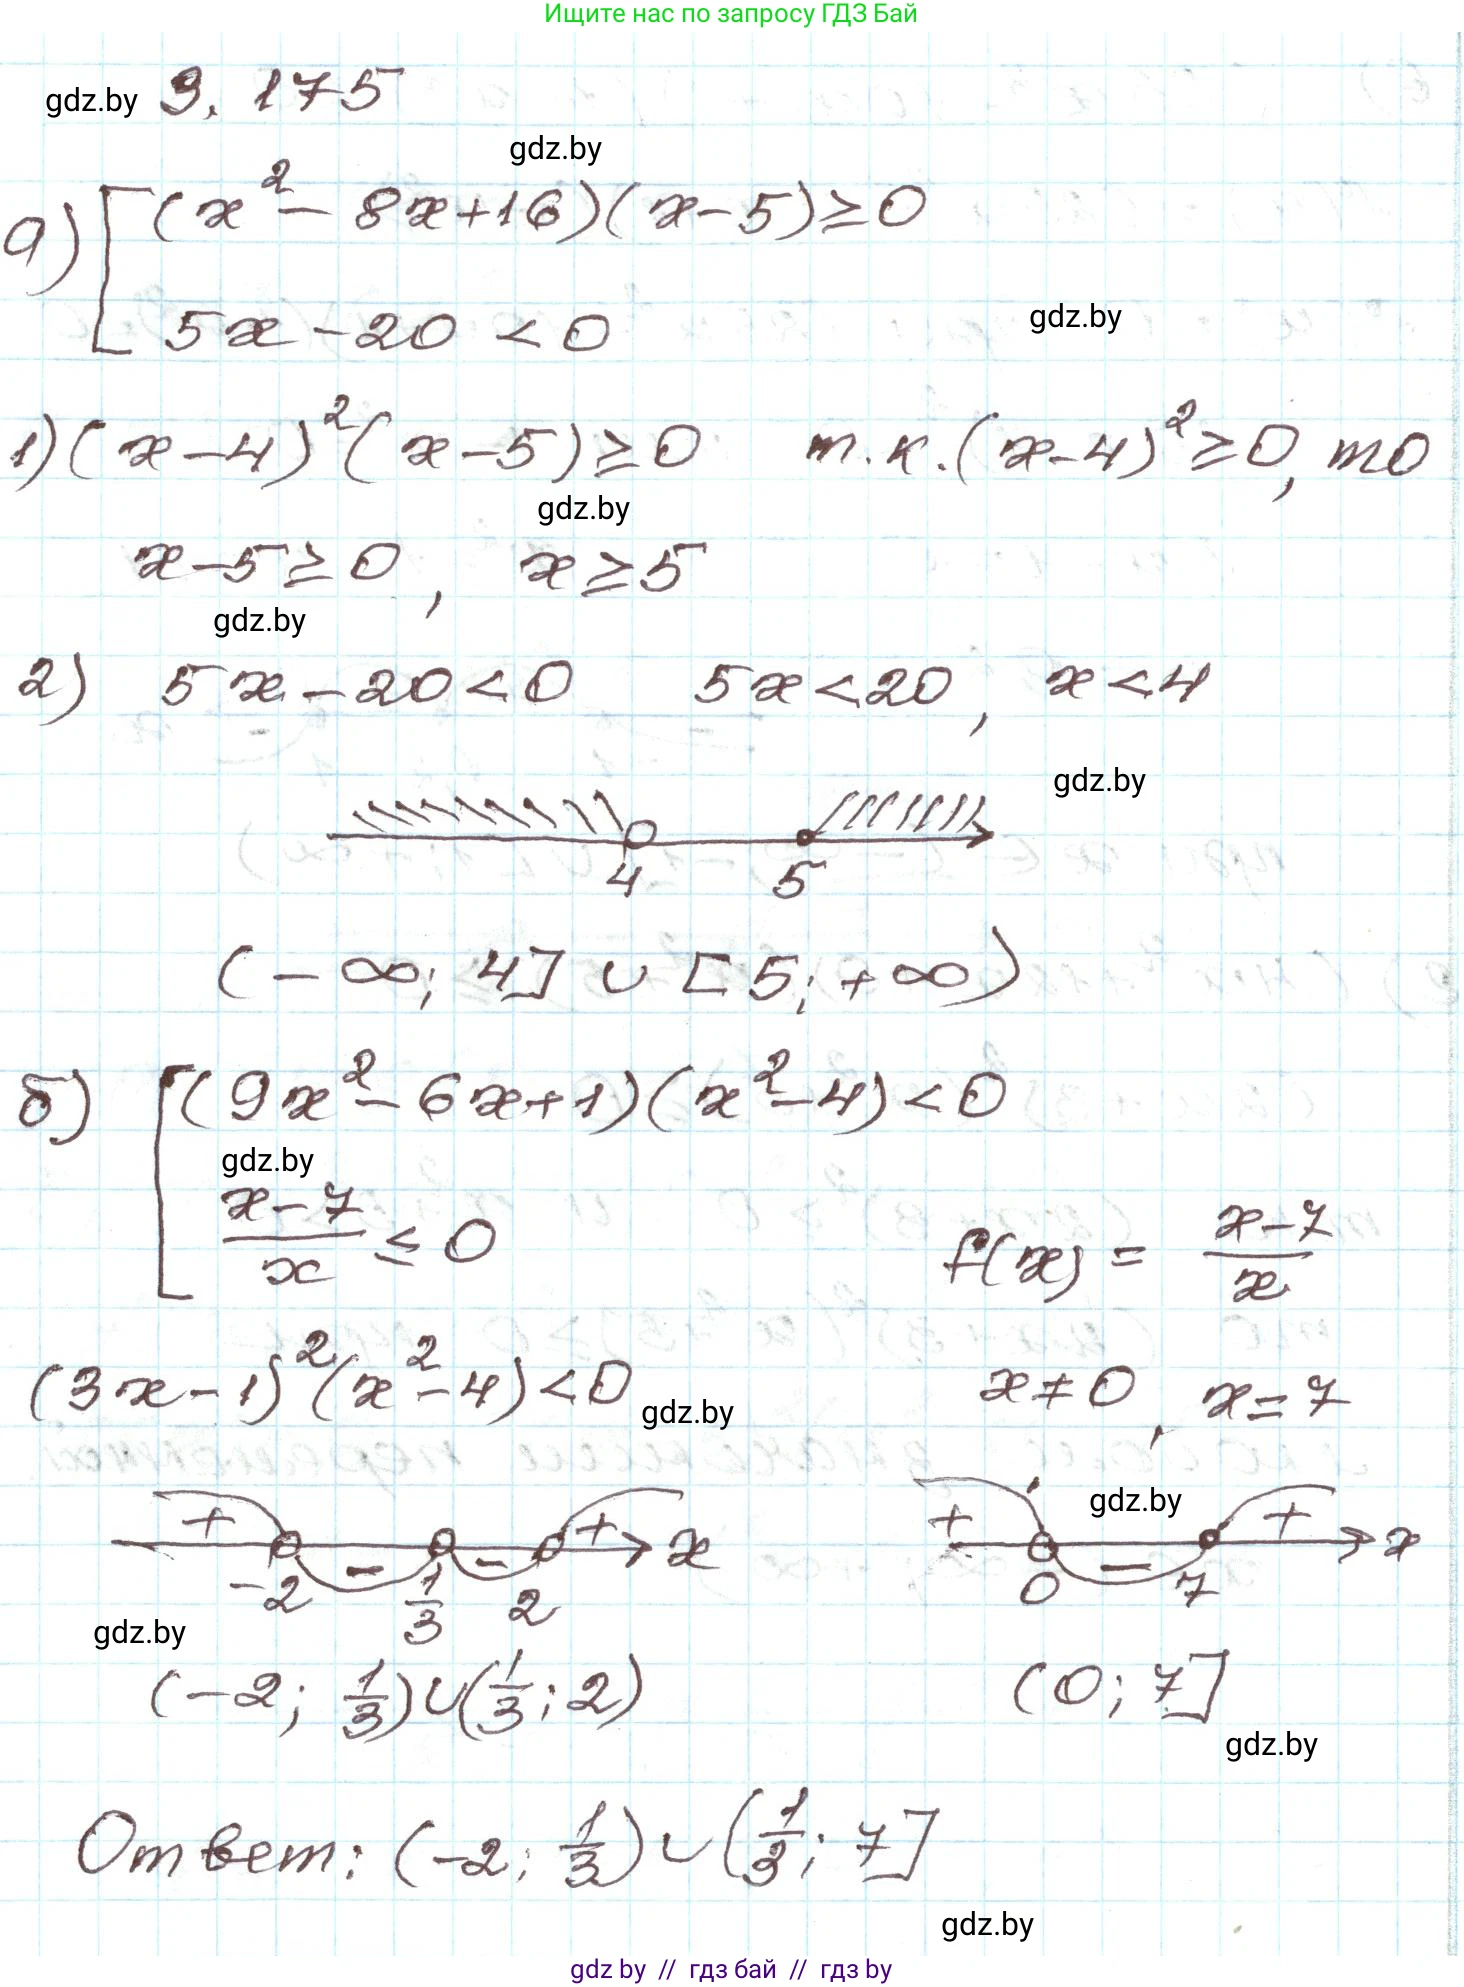 Ищите нас по запросу ГДЗ Бай
gdz.by 3. 175
gdz.by
а) [ (x² - 8x + 16)(x - 5) ≥ 0
5x - 20 < 0
gdz.by
1) (x - 4)² (x - 5) ≥ 0 т.к. (x - 4)² ≥ 0, то
gdz.by
x - 5 ≥ 0, x ≥ 5
gdz.by
2) 5x - 20 < 0 5x < 20, x < 4
gdz.by
4 5
(-∞; 4] ∪ [5; +∞)
б) [ (9x² - 6x + 1)(x² - 4) < 0
gdz.by
(x - 7)/x ≤ 0 f(x) = (x - 7)/x
(3x - 1)² (x² - 4) < 0 x ≠ 0, x = 7
gdz.by
gdz.by
+ - - + x + - + x
-2 1/3 2 0 7
gdz.by
(-2; 1/3) ∪ (1/3; 2) (0; 7]
gdz.by
Ответ: (-2; 1/3) ∪ (1/3; 7]
gdz.by
gdz by // гдз бай // гдз by